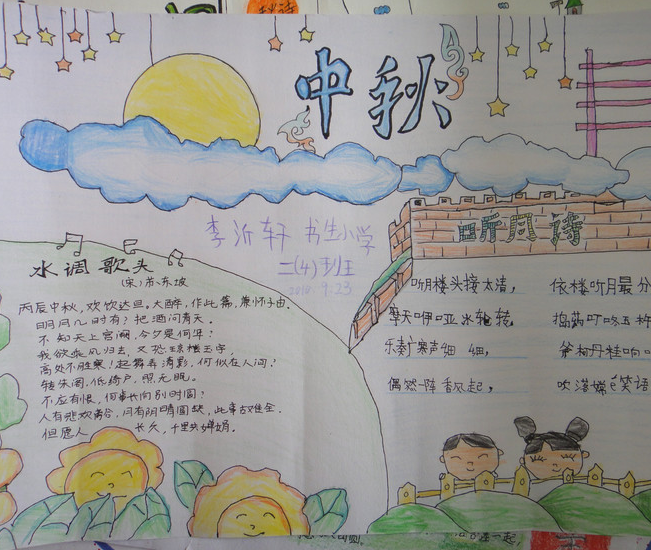 秋诗
中秋
李沂轩 书生小学
二(4)班
2010.9.23
水调歌头
(宋)苏东坡
丙辰中秋,欢饮达旦。大醉,作此篇,兼怀子由。
明月几时有?把酒问青天。
不知天上宫阙,今夕是何年?
我欲乘风归去,又恐琼楼玉宇,
高处不胜寒!起舞弄清影,何似在人间?
转朱阁,低绮户,照无眠。
不应有恨,何事长向别时圆?
人有悲欢离合,月有阴晴圆缺,此事古难全。
但愿人 长久,千里共婵娟。
听月诗
听月楼头接太清, 依楼听月最分
摩天咿哑冰轮转, 捣药叮咚玉杵
乐奏广寒声细细, 斧柯丹桂响叮
偶然一阵香风起, 吹落嫦é笑语
一起